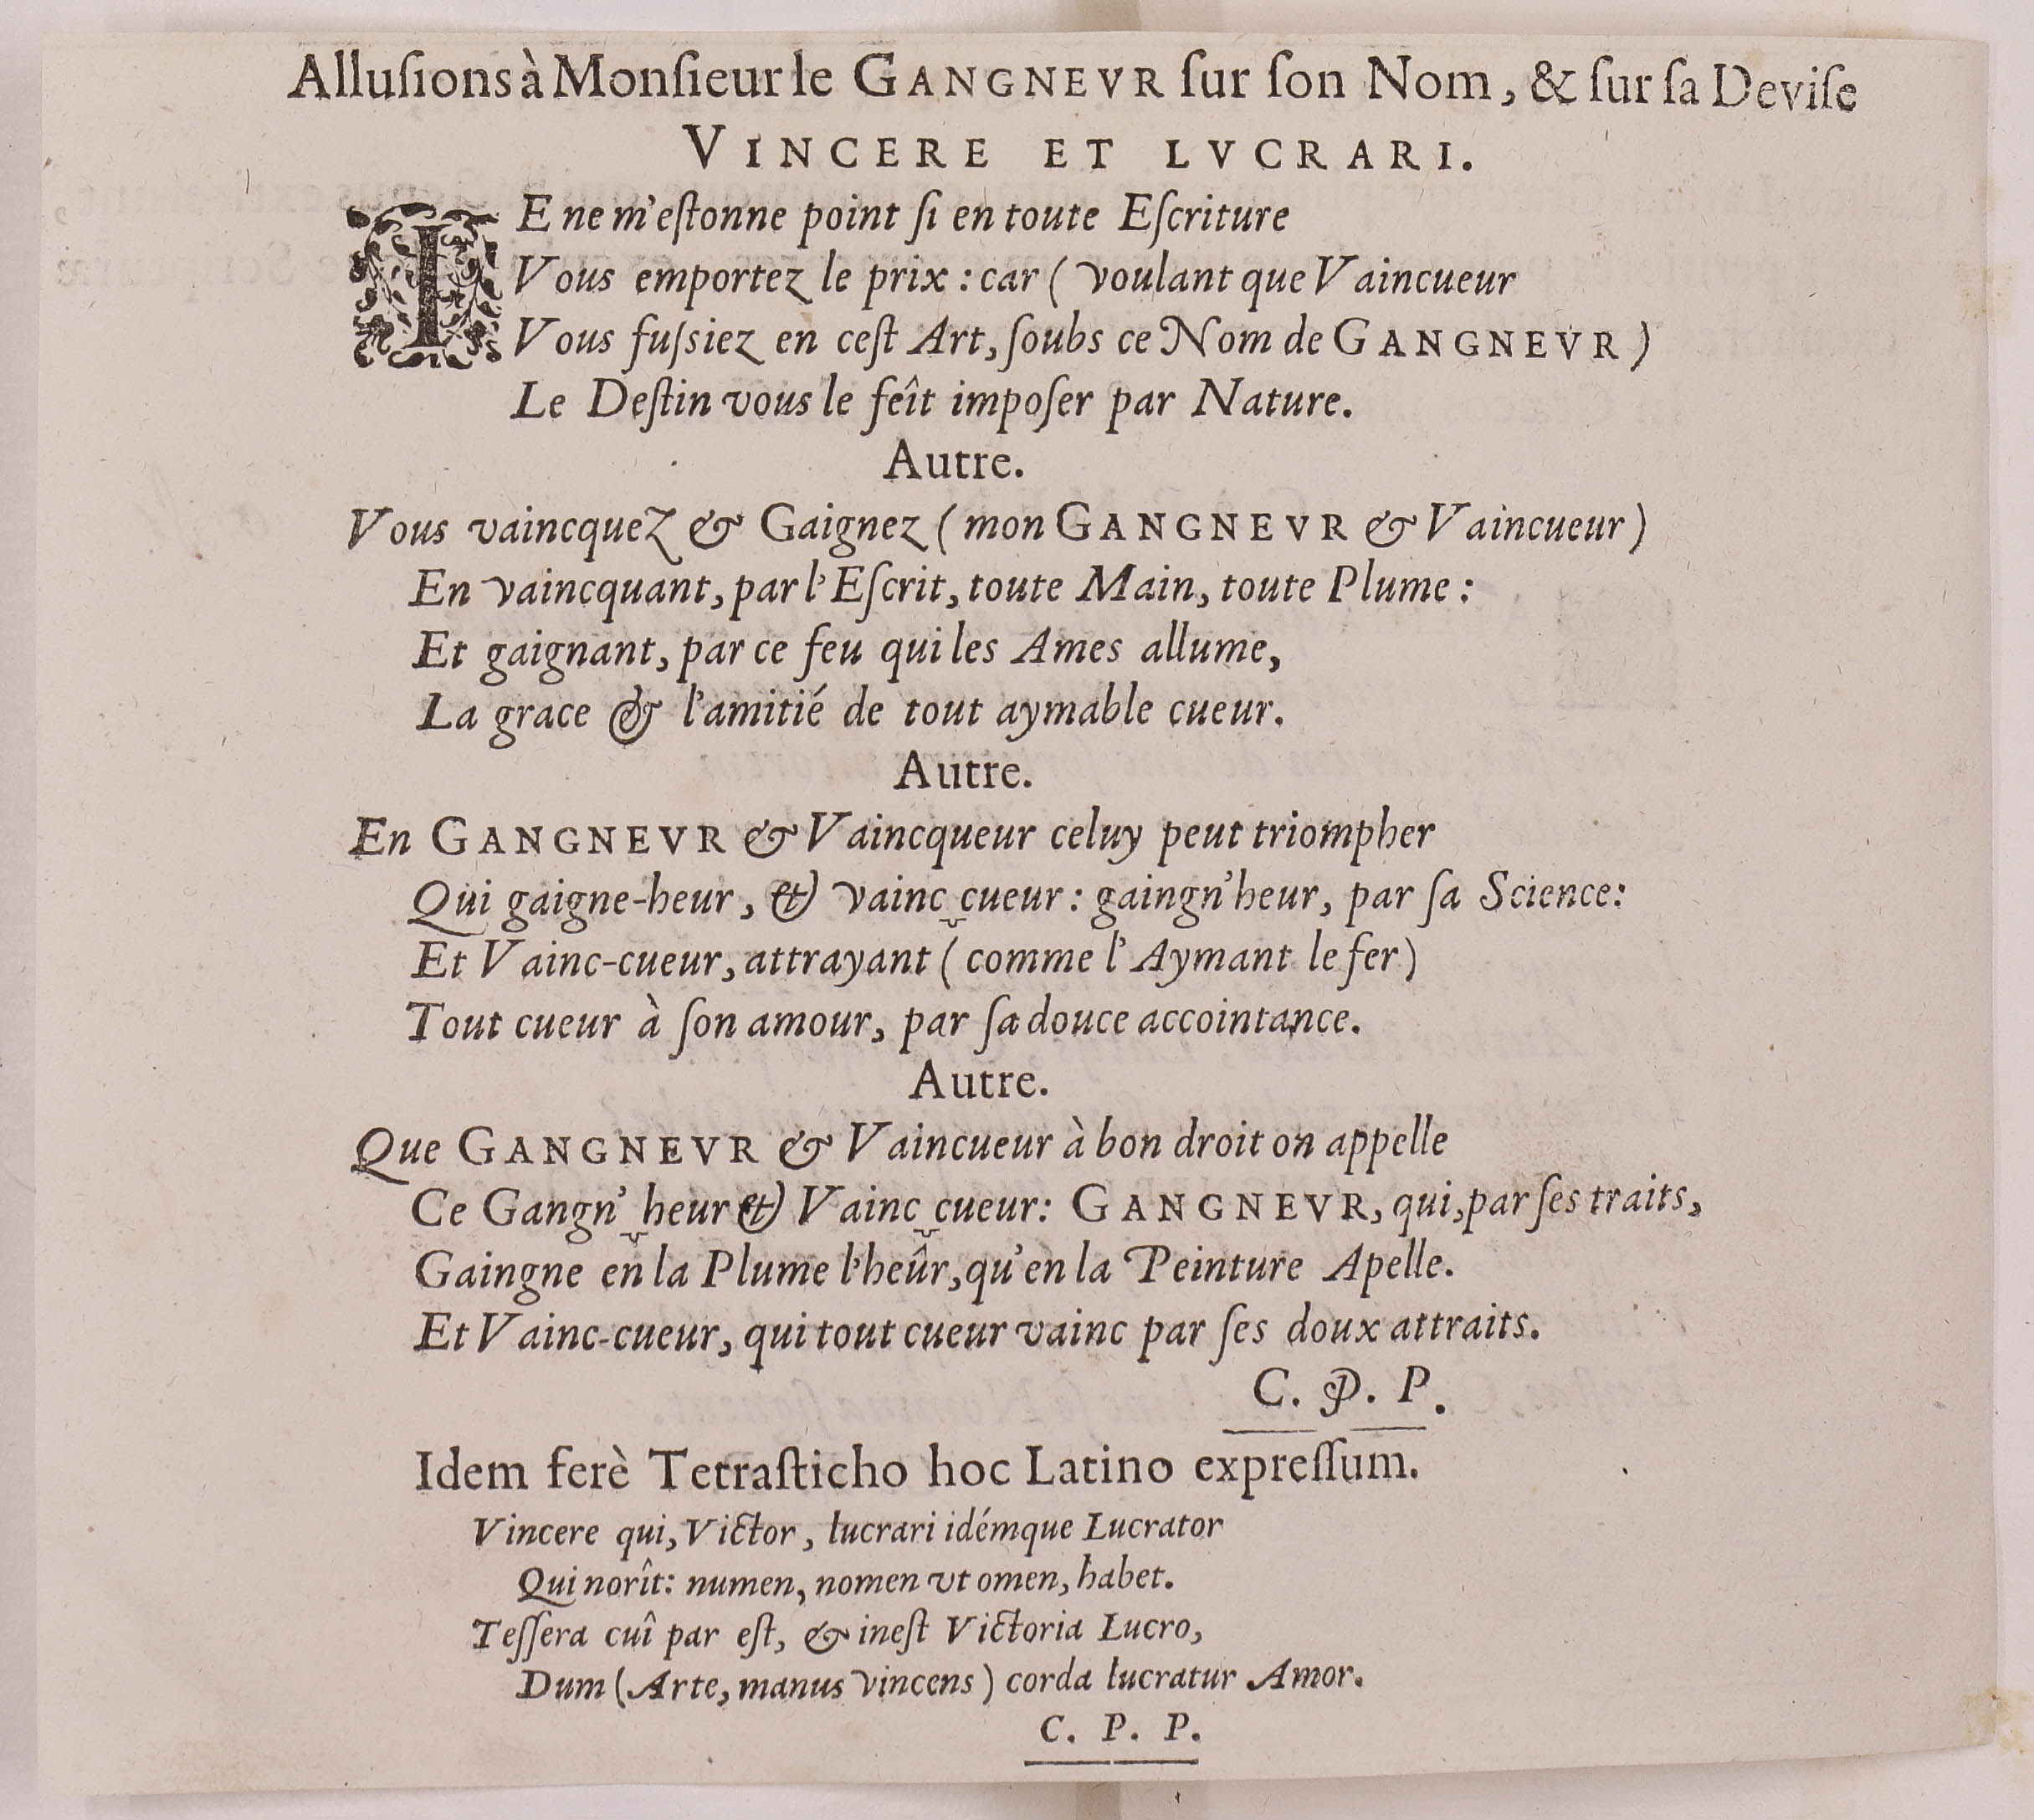 Alluſions à Monſieur le GANGNEVR ſur ſon Nom, & ſur ſa Deviſe
VINCERE ET LVCRARI.
IE ne m'eſtonne point ſi en toute Eſcriture
Vous emportez le prix : car ( voulant que Vaincueur
Vous fuſsiez en ceſt Art, ſoubs ce Nom de GANGNEVR )
Le Deſtin vous le feît impoſer par Nature.
Autre.
Vous vaincquez & Gaignez ( mon GANGNEVR & Vaincueur )
En vaincquant, par l'Eſcrit, toute Main, toute Plume :
Et gaignant, par ce feu qui les Ames allume,
La grace & l'amitié de tout aymable cueur.
Autre.
En GANGNEVR & Vaincqueur celuy peut triompher
Qui gaigne-heur, & vainc‿cueur : gaingn'heur, par ſa Science:
Et Vainc-cueur, attrayant ( comme l'Aymant le fer )
Tout cueur à ſon amour, par ſa douce accointance.
Autre.
Que GANGNEVR & Vaincueur à bon droit on appelle
Ce Gangn'‿heur & Vainc‿cueur: GANGNEVR, qui, par ſes traits,
Gaingne en la Plume l'heûr, qu'en la Peinture Apelle.
Et Vainc-cueur, qui tout cueur vainc par ſes doux attraits.
C. P. P.
Idem ferè Tetraſticho hoc Latino expreſſum.
Vincere qui, Victor, lucrari idémque Lucrator
Qui norît: numen, nomen vt omen, habet.
Teſſera cuî par eſt, & ineſt Victoria Lucro,
Dum ( Arte, manus vincens ) corda lucratur Amor.
C. P. P.